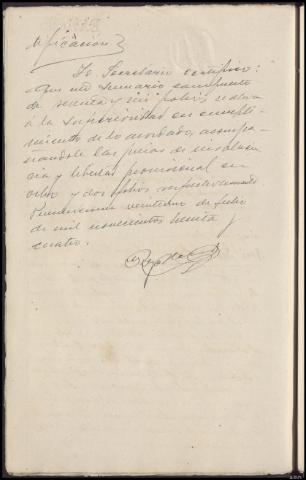 tificación
Yo Secretario certifico:
Que este sumario compuesto
de setenta y seis folios se eleva
á la Superioridad en cumpli-
miento de lo acordado, acompa-
ñándole las piezas de insolven-
cia y libertad provisional en
ocho y dos folios respectivamente.
veintiuno de Julio
de mil novecientos treinta y
cuatro.